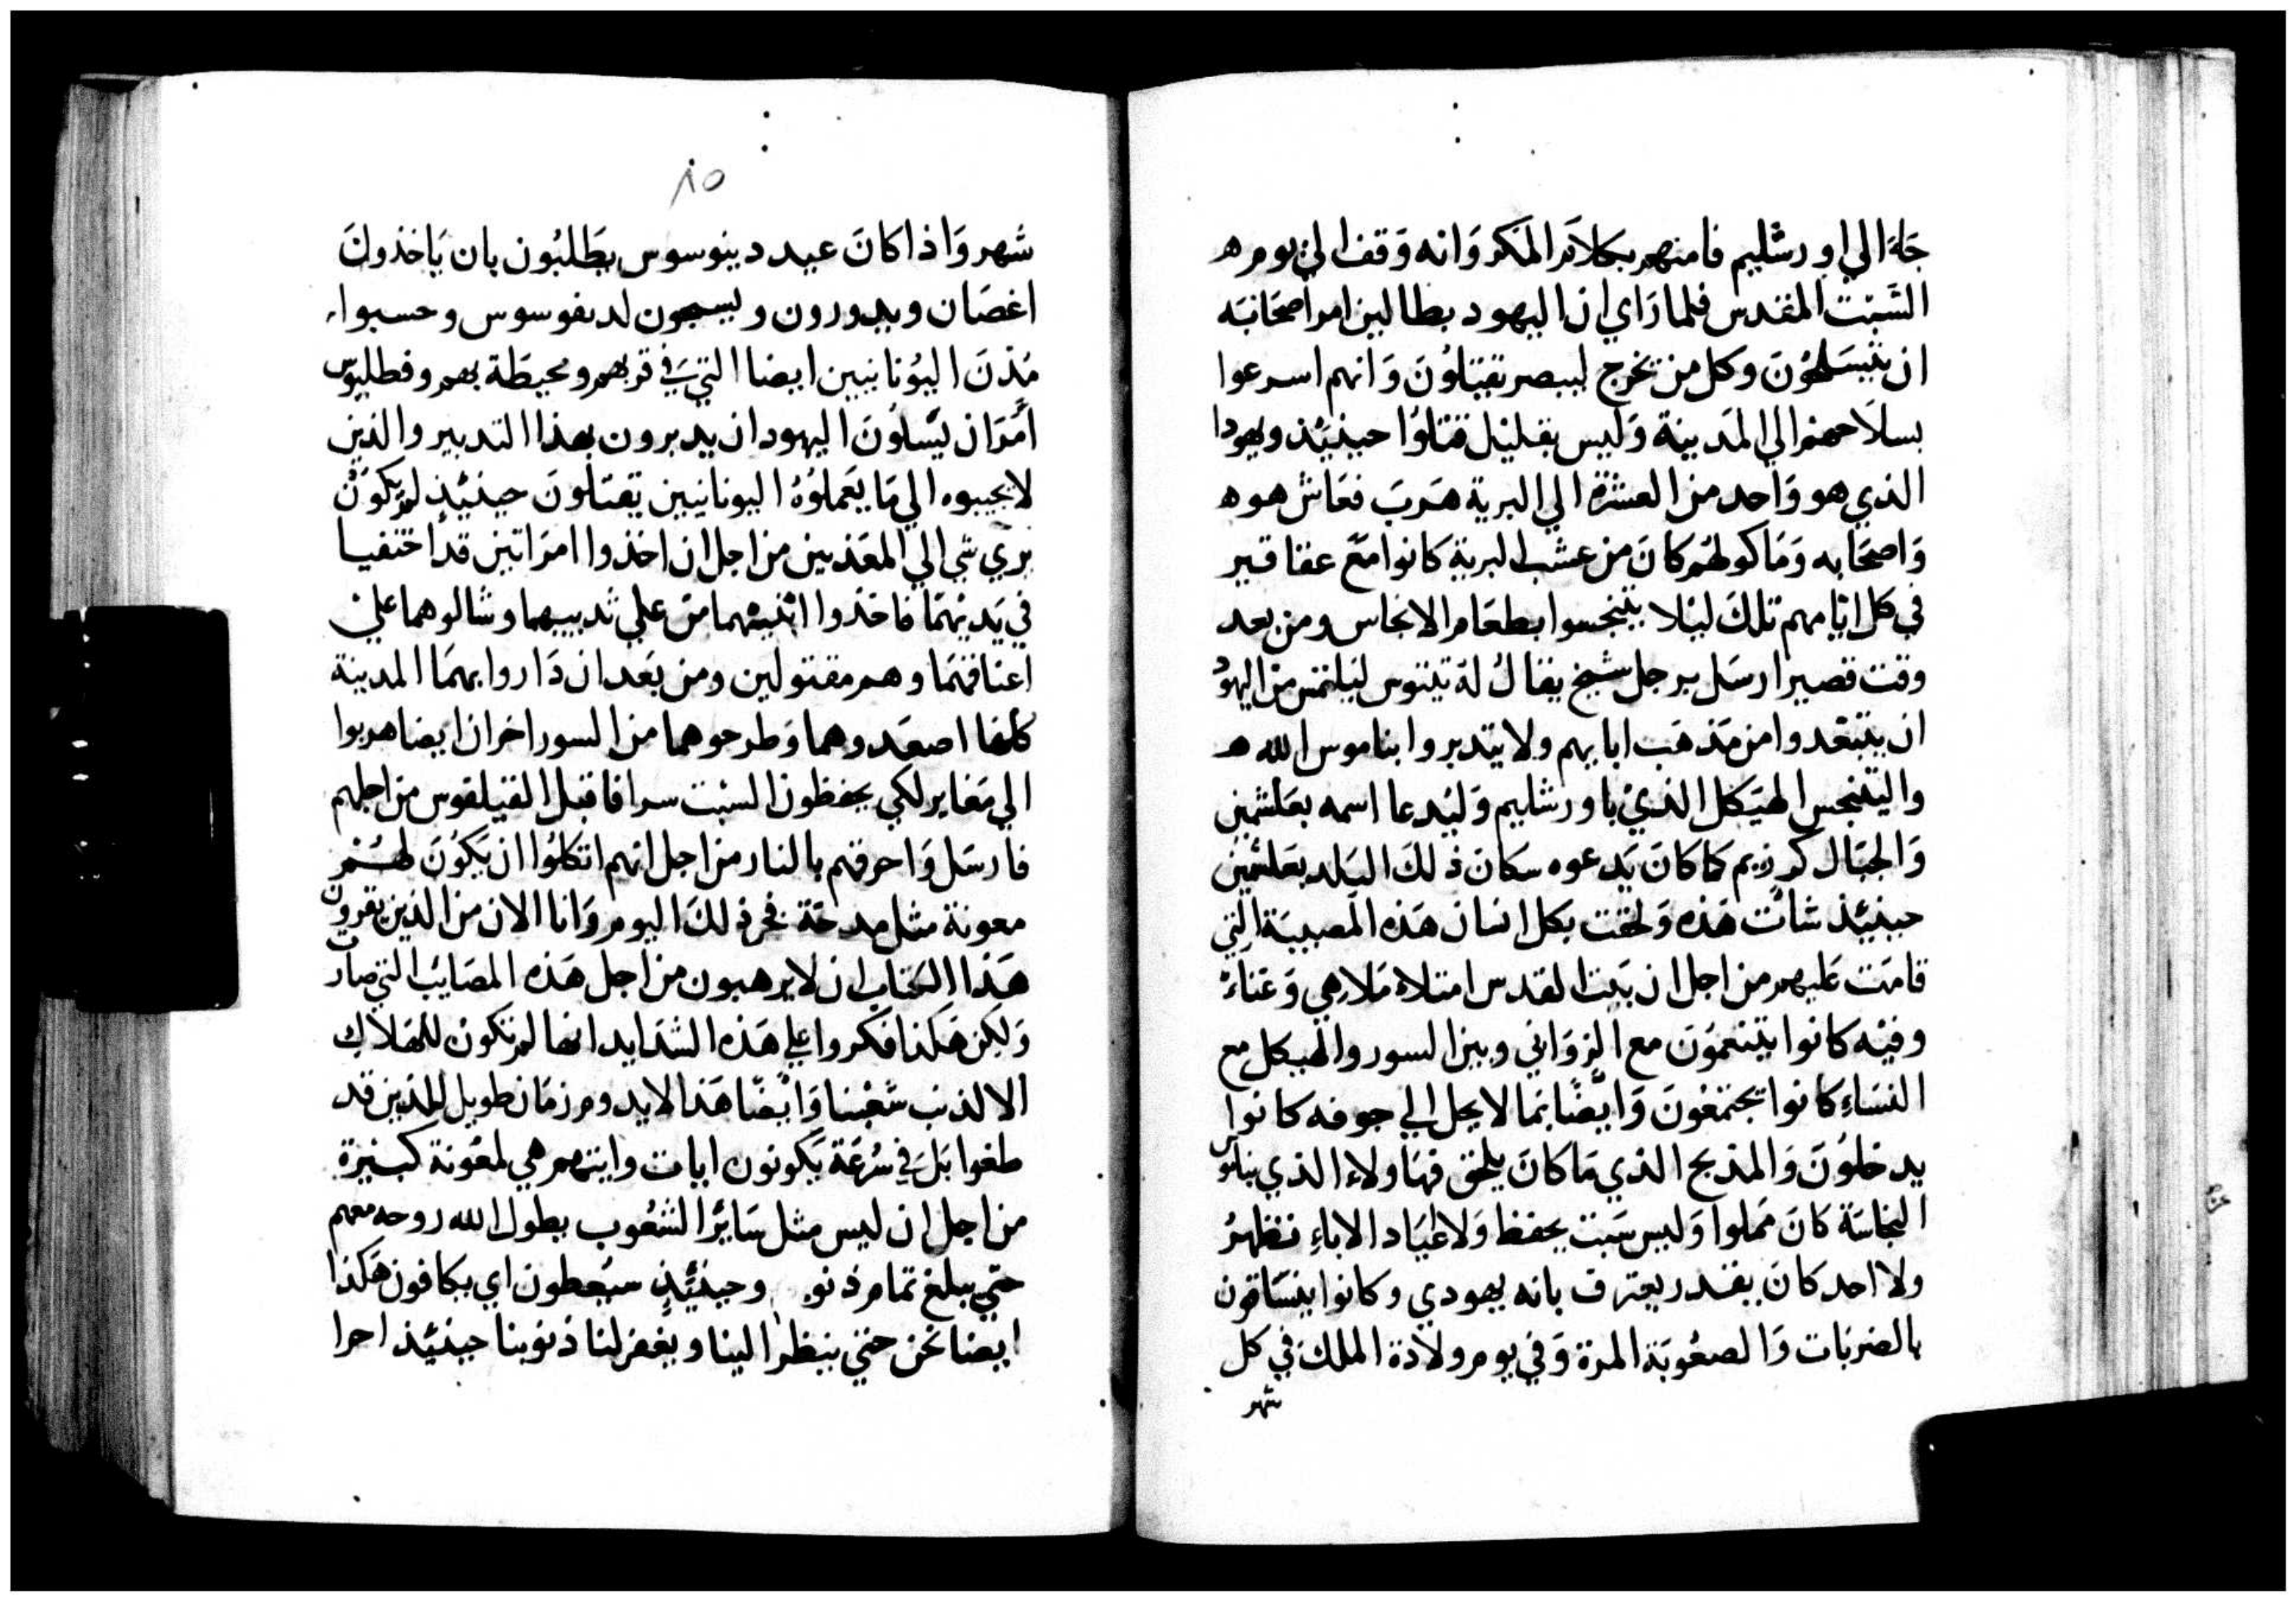 جاءَ الي اورشليم فامنهم بكلام المكر وَانه وَقف الي يوم ه
السَبت المقدس فلما رَاي ان اليهود بطالين امر اصحَابَه
ان يتسَلحُونَ وكل من تخرج ليبصر تقتلوُنَ وَانهم اسرعوا
بسلاحهم الي المَدينة وَليس بقليْل قتلوُا حينئذ ويهودا
الذي هو وَاحد من العشرَة الي البرية هَربَ فعَاش هو ه
وَاصحَابه وَمَاكولهُم كانَ من عشب البرية كانوا مَعَ عقاقير
في كل ايَامهم تلكَ ليْلا يتنجسوا بطعَام الانجاس ومن بعد
وقت قصير ارسَل برجل شيخ يقالُ لهُ تينوس ليَلتمس من اليهوُد
ان يتبَعدوا من مَذهَب ابايهم ولا يتدبروا بناموس الله ه
واليتنجس الهيَكل الذيْ باورشليم وَليُدعا اسمه بعَلشمين
وَالجبَال كرزيم كما كانَ يَدعوه سكان ذلكَ البَلد بعَلشمين
حينئذ شاتْ هَذه وَلحقت بكل انسان هَذه المصيبَة التي
قامَت عَليهم من اجل ان بَيت القدس امتلاء مَلاهي وَغناءْ
وفيْه كانوا يتنعموُنَ مع الزوَاني وبين السور والهيكل مع
النسَاءِ كانوا يجتمَعُونَ وَايضًا بمَا لا يحل الي جوفه كانوا
يدخلوُنَ وَالمذبح الذي مَا كانَ يلحق فهَاولاء الذي
النجاسَة كانَ مَملوا وَليس سَبت يحفظ وَلا اعيَاد الاباءِ تظهرُ
ولا احد كانَ يقدر يعترف بانه يهودي وكانوا ينسَاقون
بالضربَات وَالصعُوبَة المرة وَفي يوم ولادة الملك في كل
شهر
٨٥
شهر وَاذا كانَ عيد دينوسوس يطَلبُون بان يَاخذونَ
اغصَان ويدورون ويسبحون لدينوسوس وحسبوا
مَدنَ اليوُنانيين ايضا التيَ في قربهم ومحيطَة بهم وفطليوس
امَرَ ان يسَّلوُنَ اليهود ان يدبرون بهذا التدبير والذين
لا يجيبوه الي مَا يَعملوُهُ اليونانيين تقتلونَ حينئذٍ لم يكوُنْ
بري شي الي المعَذبين من اجل ان اخذوا امرَاتين قد اختفيا
في يَديْهمَا فاخذوا ابنيْهما من علي ثدييهما وشالوهما علي
اعناقهمَا وهم مقتولين ومن بَعد ان دَاروا بهمَا المدينة
كلها اصعَدوهما وَطرحوهما من السور اخران ايضا هربوا
الي مَغاير لكي يحفظون السبْت سرا فاقبل الفيلقوس من اجلهم
فارسَل وَاحرقهم بالنار من اجل انهم اتكلوُا ان يَكونَ لهُم
معونة مثل مدحَة فخر ذلكَ اليوم وَانا الان من الذين يقرون
هَذا الكتاب ان لا يرهبون من اجل هَذه المصَايب التي صارت
وَلكن هَكذا فكروا علي هَذه الشدَايد انها لم تكون للهَلاك
الا لذنب شعْبنا وَايْضًا هَذا لا يدوم زمَان طويل للذين قد
طغوا بَل في سُرعَة يَكونون ايات وايتهم هي لمعُونة كبيرة
من اجل ان ليس مثل سَايْر الشعُوب يطول الله روحه معهم
حتي يبلغ تمام ذنو وحينئذٍ سيُعطون اي يكافون هَكذا
ايضا نحن حتي ينظر الينا ويغفر لنا ذنوبنا حينئذ احرا